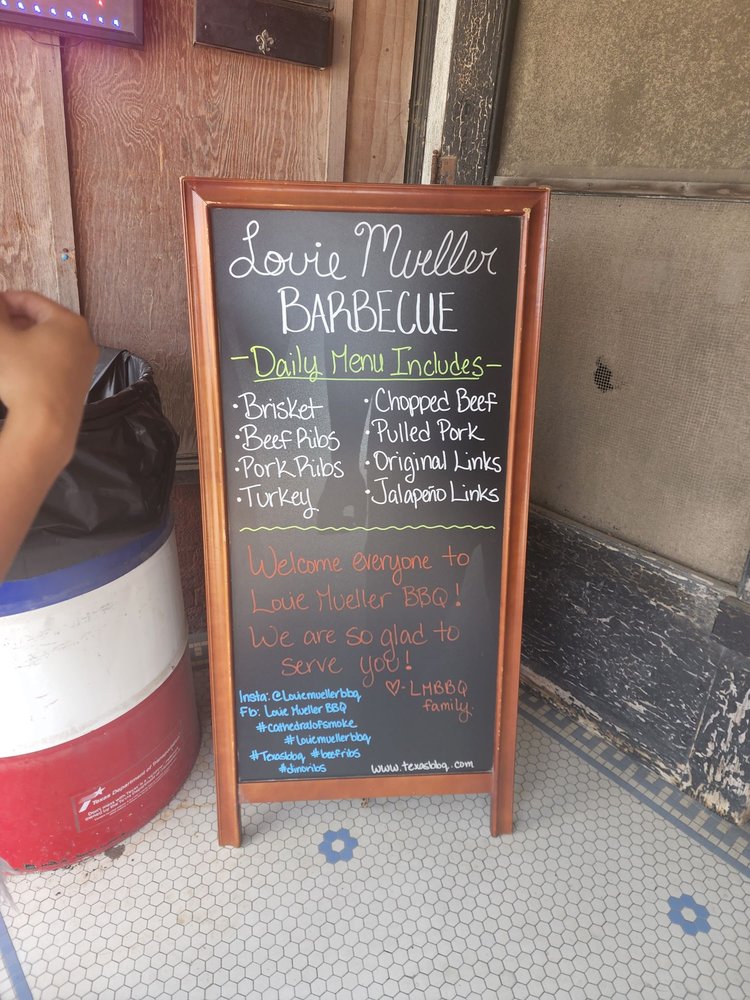 Louie Mueller
BARBECUE
- Daily Menu Includes -
· Brisket
· Beef Ribs
· Pork Ribs
· Turkey
· Chopped Beef
· Pulled Pork
· Original Links
· Jalapeño Links
Welcome everyone to
Louie Mueller BBQ!
We are so glad to
serve you!
♡- LMBBQ
family.
Insta: @Louiemuellerbbq
Fb: Louie Mueller BBQ
#cathedralofsmoke
#louiemuellerbbq
#Texasbbq #beefribs
#dinoribs
www.texasbbq.com
Texas Department of